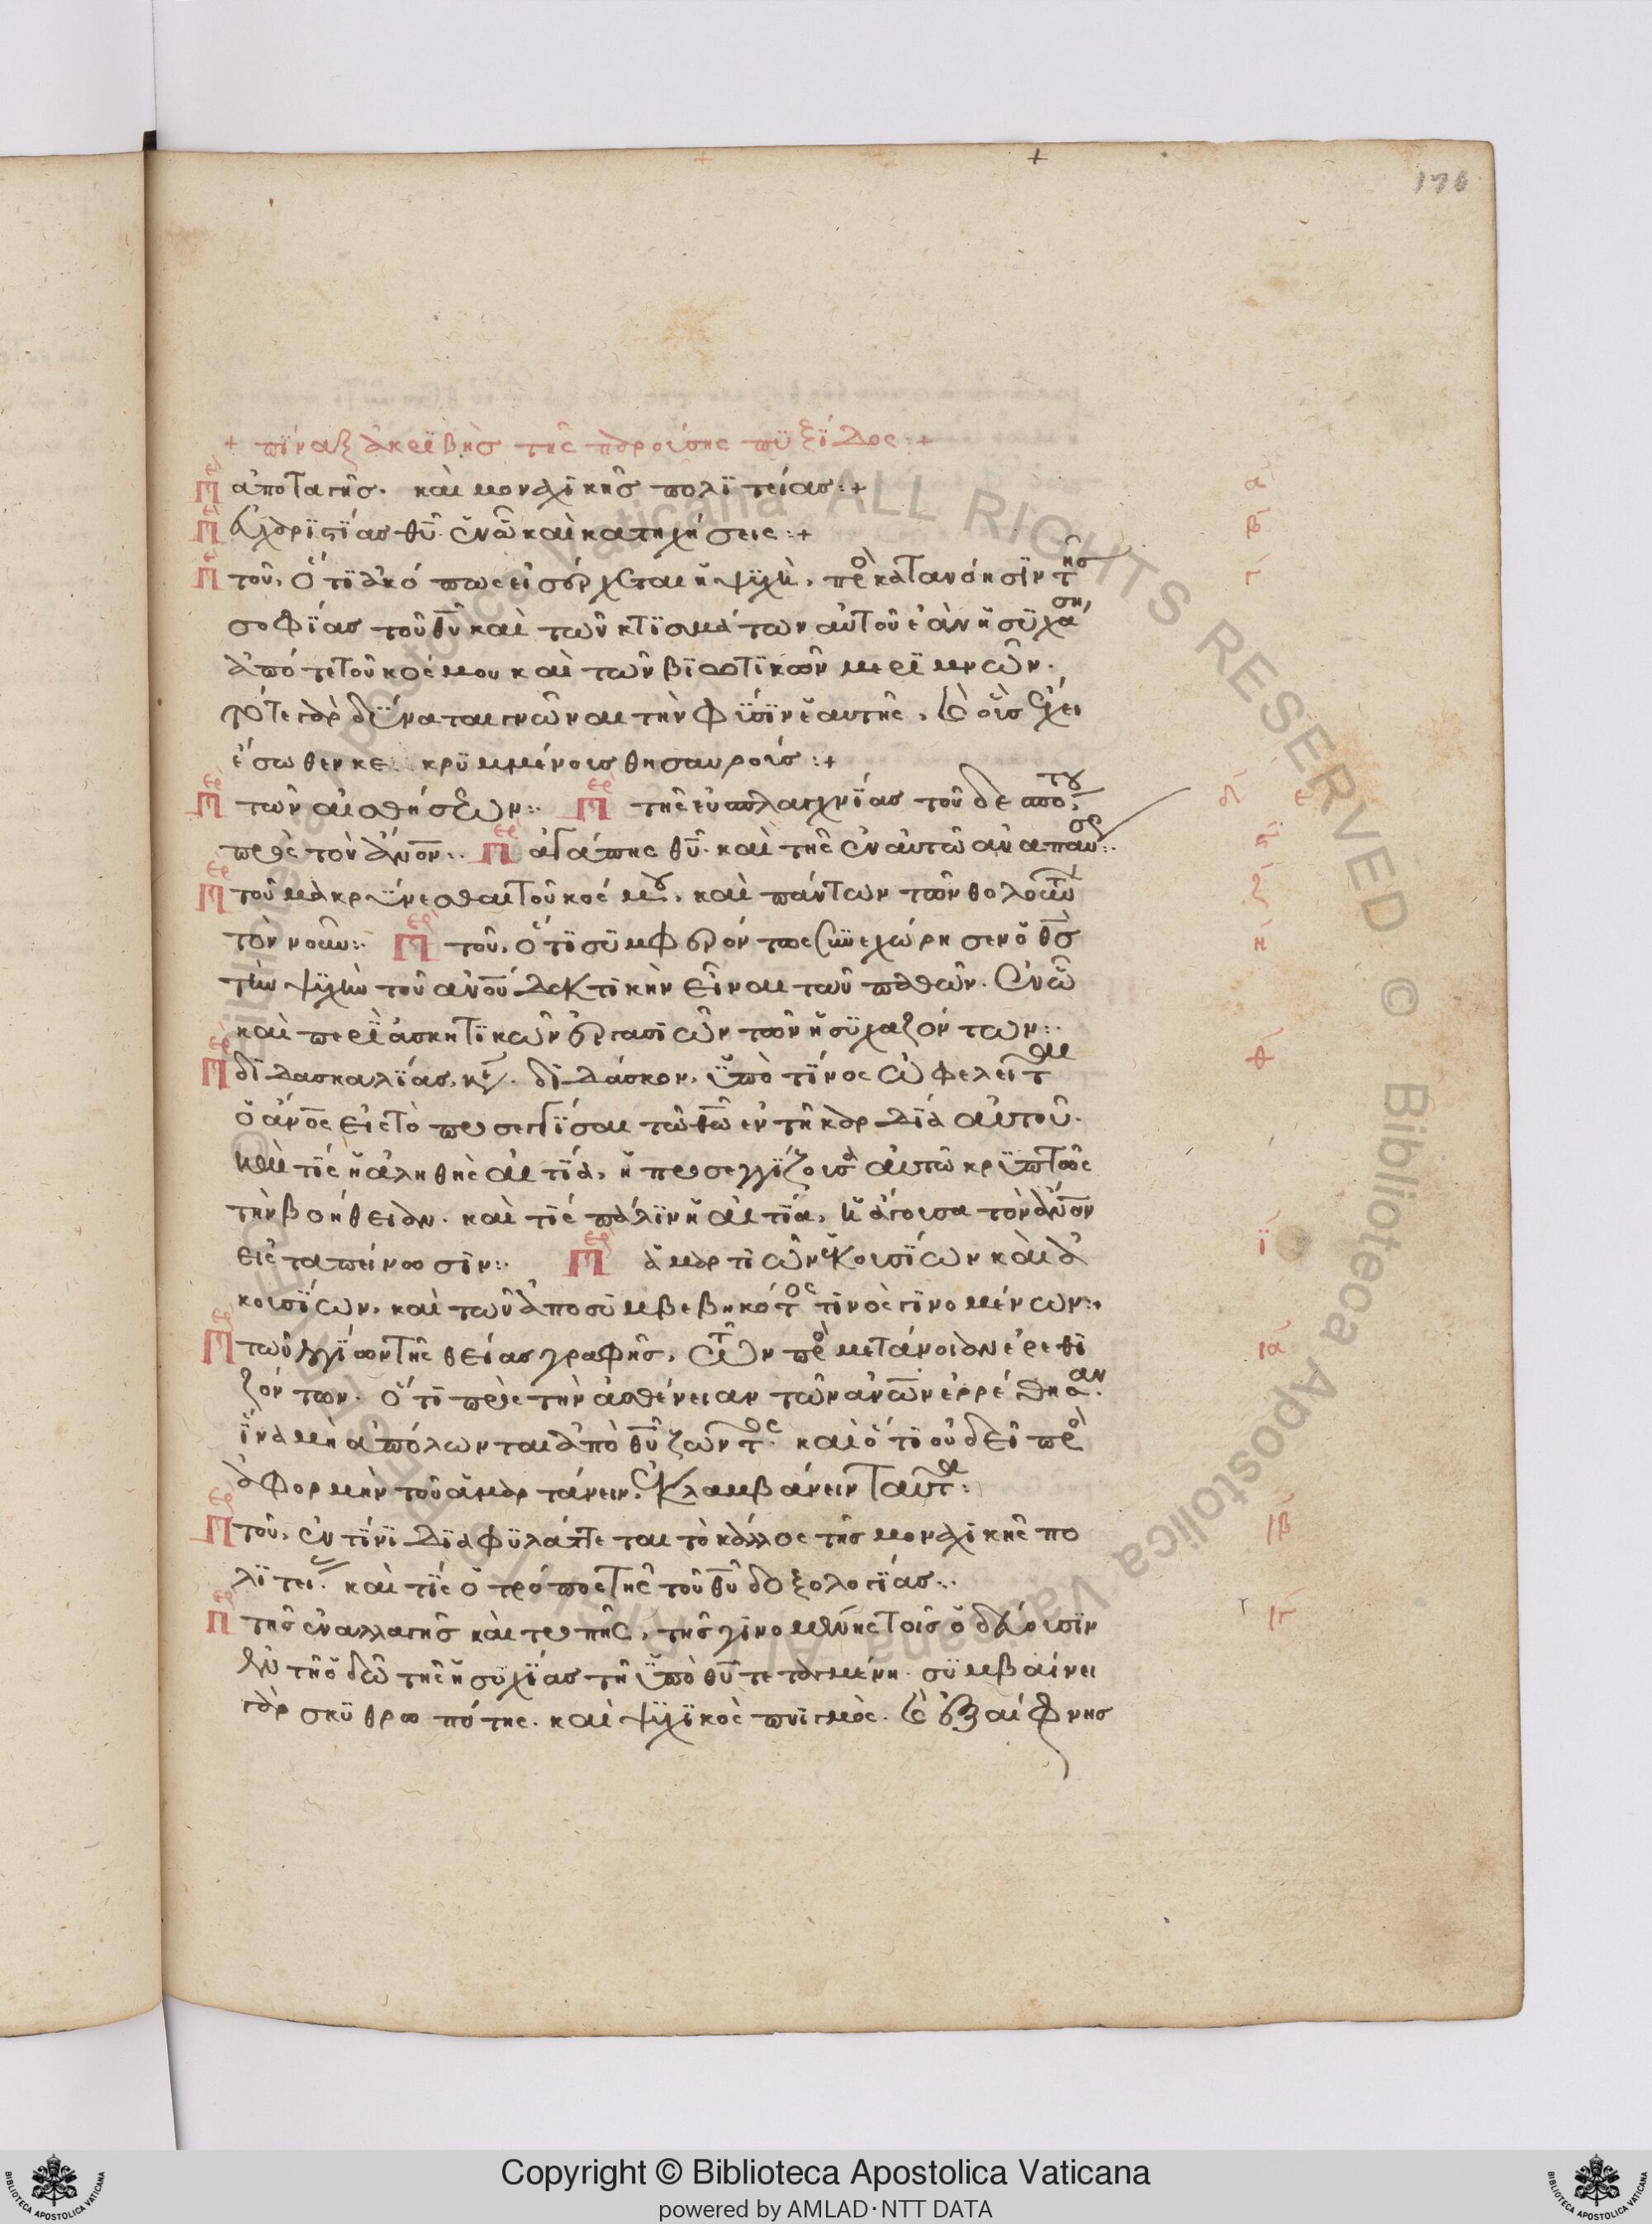 176
+ πΐναξ ἀκρϊβὴσ τῆς παρούσης πϋξΐδος :+
Περ ἀποταγῆσ. καὶ μοναχϊκῆσ πολϊτείασ :+ α
Περ εὐχαρϊστίασ θῡ. ἐν ὧ καὶ κατηχήσεις :+ β
Περ τοῦ, ὅτϊ ἀκόπως εἰσέρχεται ἡ ψϋχὴ, πρὸ κατανόησϊν τῆσ γ
σοφΐασ τοῦ θῡ καὶ τῶν κτϊσμάτων αὐτοῦ ἐὰν ἡσϋχάση,
ἀπό τε τοῦ κόσμου καὶ τῶν βϊωτϊκῶν μερϊμνῶν.
τότε γὰρ δΰναται γνῶναι τὴν φΰσϊν ἑαυτῆς, καὶ οἷσ ἔχει
ἔσωθεν κεκρϋμμένοισ θησαυροῖσ :+
Περ τῶν αἰσθήσεων :· Περ τῆς εὐσπλαγχνΐασ τοῦ δεσπότου δ ε
πρὸς τὸν ἄνον :· Περ ἀγάπης θῡ. καὶ τῆς ἐν αὐτῶ αναπαύσε :· ς
Περ τοῦ μακρΰνεσθαι τοῦ κόσμου. καὶ πάντων τῶν θολούντων ζ
τὸν νοῦν :· Περ τοῦ, ὅτϊ σϋμφερόντως συνεχώρησεν ὁ θσ η
τὴν ψϋχὴν τοῦ ανου δεκτϊκὴν εἶναι τῶν παθῶν. ἐν ὧ
καὶ περϊ ἀσκητϊκῶν ἐργασιῶν τῶν ἡσϋχαζόντων :·
Περ διδασκαλΐασ, διδάσκον, ὑπὸ τΐνος ὠφελεῖται θ
ὁ ανος εἰς τὸ προσεγγΐσαι τῶ θω ἐν τῆ καρδΐα αὐτοῦ.
καὶ τίς ἡ ἀληθὴς αἰτΐα, ἡ προσεγγΐζουσα αὐτῶ κρϋπτῶς
τὴν βοήθειαν. καὶ τίς πάλϊν ἡ αἰτΐα, ἡ ἄγουσα τὸν ἄνον
εἰς ταπείνωσϊν :· Περ ἁμαρτιῶν ἑκουσΐων καὶ ἀ ι
κουσΐων, καὶ τῶν ἀπο σϋμβεβηκότος τινὸς γινομένων :+
Περ τῶν λογΐων τῆς θείασ γραφῆσ, τῶν πρὸ μετάνοιαν ἐρεθϊ ια
ζόντων. ὅτι πρὸς τὴν ἀσθένειαν τῶν ανων ἐρρέθησαν.
ἵνα μὴ ἀπόλωνται ἀπὸ θῡ ζῶντος. καὶ ὅτι οὐ δεῖ πρὸ
ἀφορμὴν τοῦ ἁμαρτάνειν, ἐκλαμβάνειν ταῦτα :
Περ τοῦ, ἐν τΐνϊ διαφϋλάττεται τὸ κάλλος τῆσ μοναχικῆς πο ιβ
λϊτείας. καὶ τίς ὁ τρόπος τῆς τοῦ θῡ δοξολογΐασ :·
Περ τῆσ ἐναλλαγῆσ καὶ τροπῆς, τῆσ γινομένης τοῖσ ὁδεύουσϊν ιγ
ἐν τῆ ὁδῶ τῆς ἡσϋχΐασ τῆ ὑπὸ θῡ τεταγμένη. σϋμβαίνει
γὰρ σκϋθρωπότης. καὶ ψϋχϊκὸς πνιγμὸς. καὶ ἐξαίφνησ
Copyright © Biblioteca Apostolica Vaticana
powered by AMLAD·NTT DATA